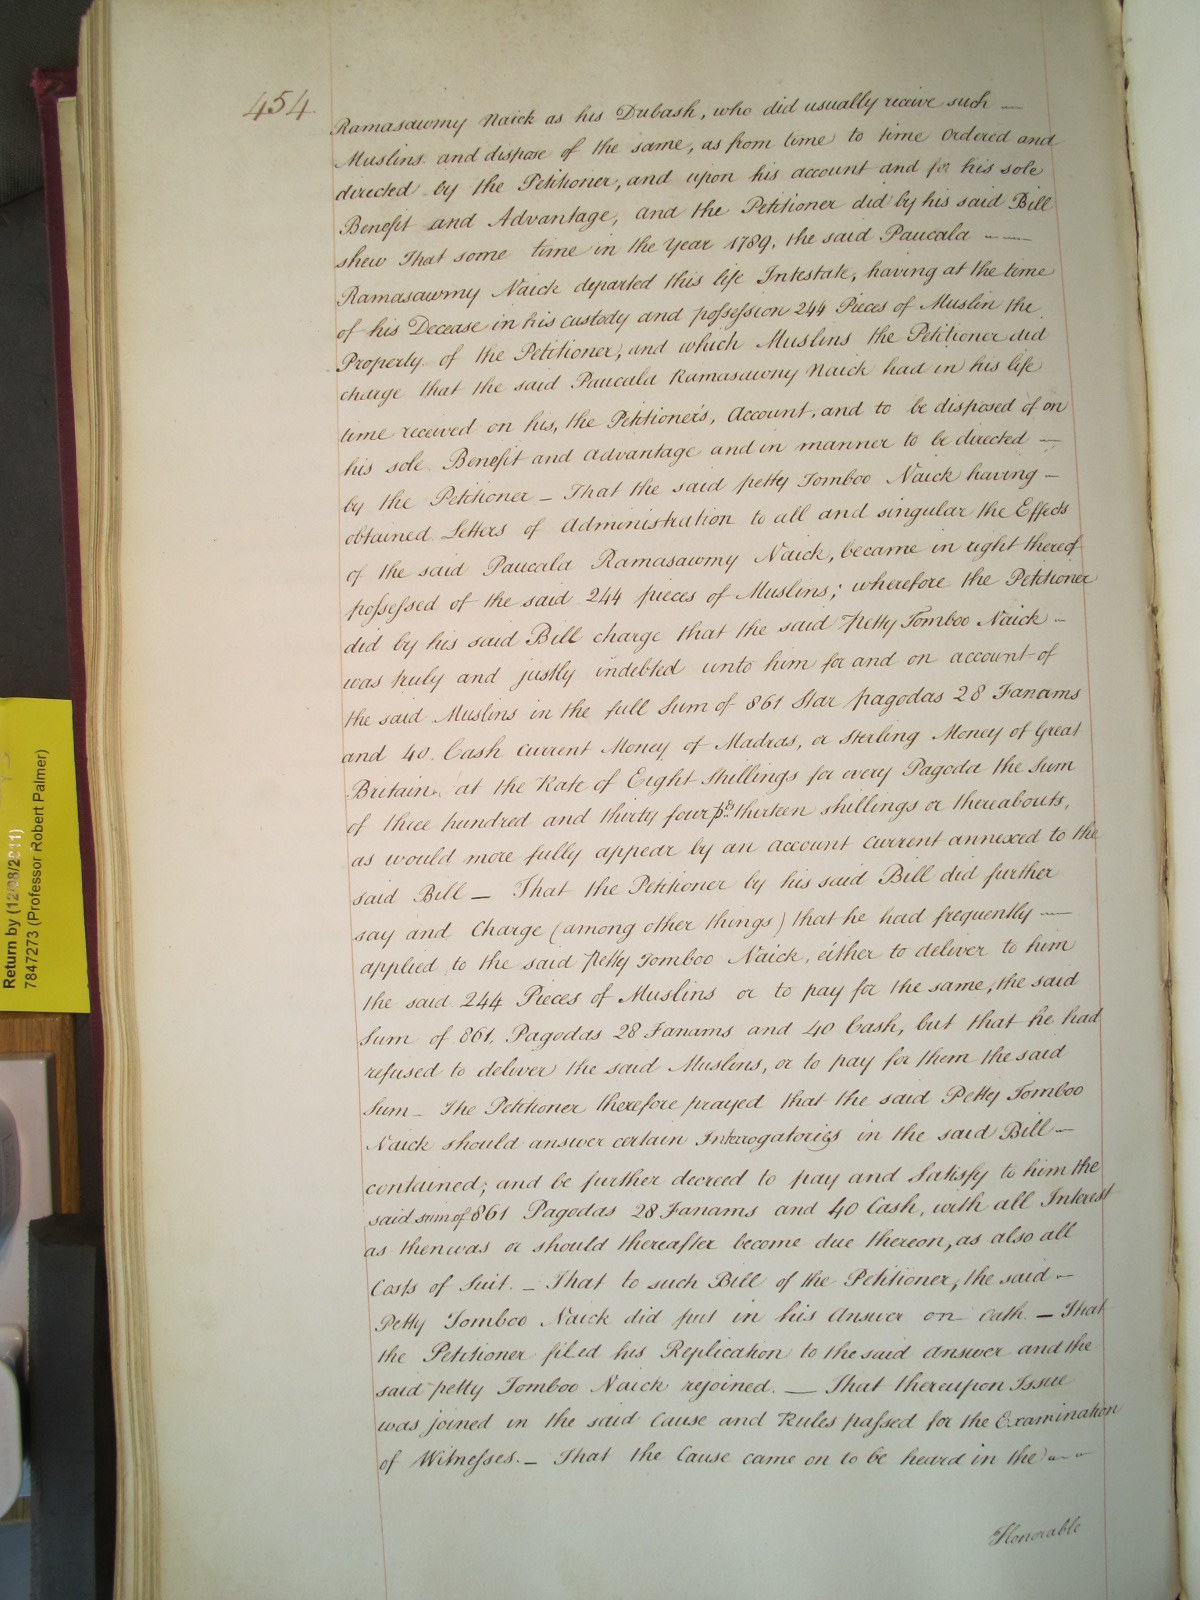 454.
Ramasawmy Naick as his Dubash, who did usually receive such —
Muslins and dispose of the same, as from time to time ordered and
directed by the Petitioner, and upon his account and for his sole
Benefit and Advantage, and the Petitioner did by his said Bill
shew That some time in the Year 1789, the said Paucala ——
Ramasawmy Naick departed this life Intestate, having at the time
of his Decease in his custody and possession 244 Pieces of Muslin the
Property of the Petitioner, and which Muslins the Petitioner did
charge that the said Paucala Ramasawmy Naick had in his life
time received on his, the Petitioner's, Account, and to be disposed of on
his sole Benefit and advantage and in manner to be directed —
by the Petitioner — That the said petty Tomboo Naick having —
obtained Letters of Administration to all and singular the Effects
of the said Paucala Ramasawmy Naick, became in right thereof
possessed of the said 244 pieces of Muslins; wherefore the Petitioner
did by his said Bill charge that the said petty Tomboo Naick —
was truly and justly indebted unto him for and on account of
the said Muslins in the full Sum of 861 Star pagodas 28 Fanams
and 40 Cash current Money of Madras, or Sterling Money of Great
Britain at the Rate of Eight Shillings for every Pagoda the Sum
of three hundred and thirty four pds thirteen shillings or thereabouts,
as would more fully appear by an account current annexed to the
said Bill — That the Petitioner by his said Bill did further
say and Charge (among other things) that he had frequently —
applied to the said Petty Tomboo Naick, either to deliver to him
the said 244 Pieces of Muslins or to pay for the same, the said
Sum of 861, Pagodas 28 Fanams and 40 Cash, but that he had
refused to deliver the said Muslins, or to pay for them the said
Sum — The Petitioner therefore prayed that the said Petty Tomboo
Naick should answer certain Interrogatories in the said Bill —
contained; and be further decreed to pay and Satisfy to him the
said sum of 861 Pagodas 28 Fanams and 40 Cash, with all Interest
as then was or should thereafter become due thereon, as also all
Costs of Suit. — That to such Bill of the Petitioner, the said —
Petty Tomboo Naick did put in his Answer on Oath. — That
the Petitioner filed his Replication to the said Answer and the
said petty Tomboo Naick rejoined. — That thereupon Issue
was joined in the said Cause and Rules passed for the Examination
of Witnesses. — That the Cause came on to be heard in the ——
Honorable
Return by (12/08/2011)
7847273 (Professor Robert Palmer)